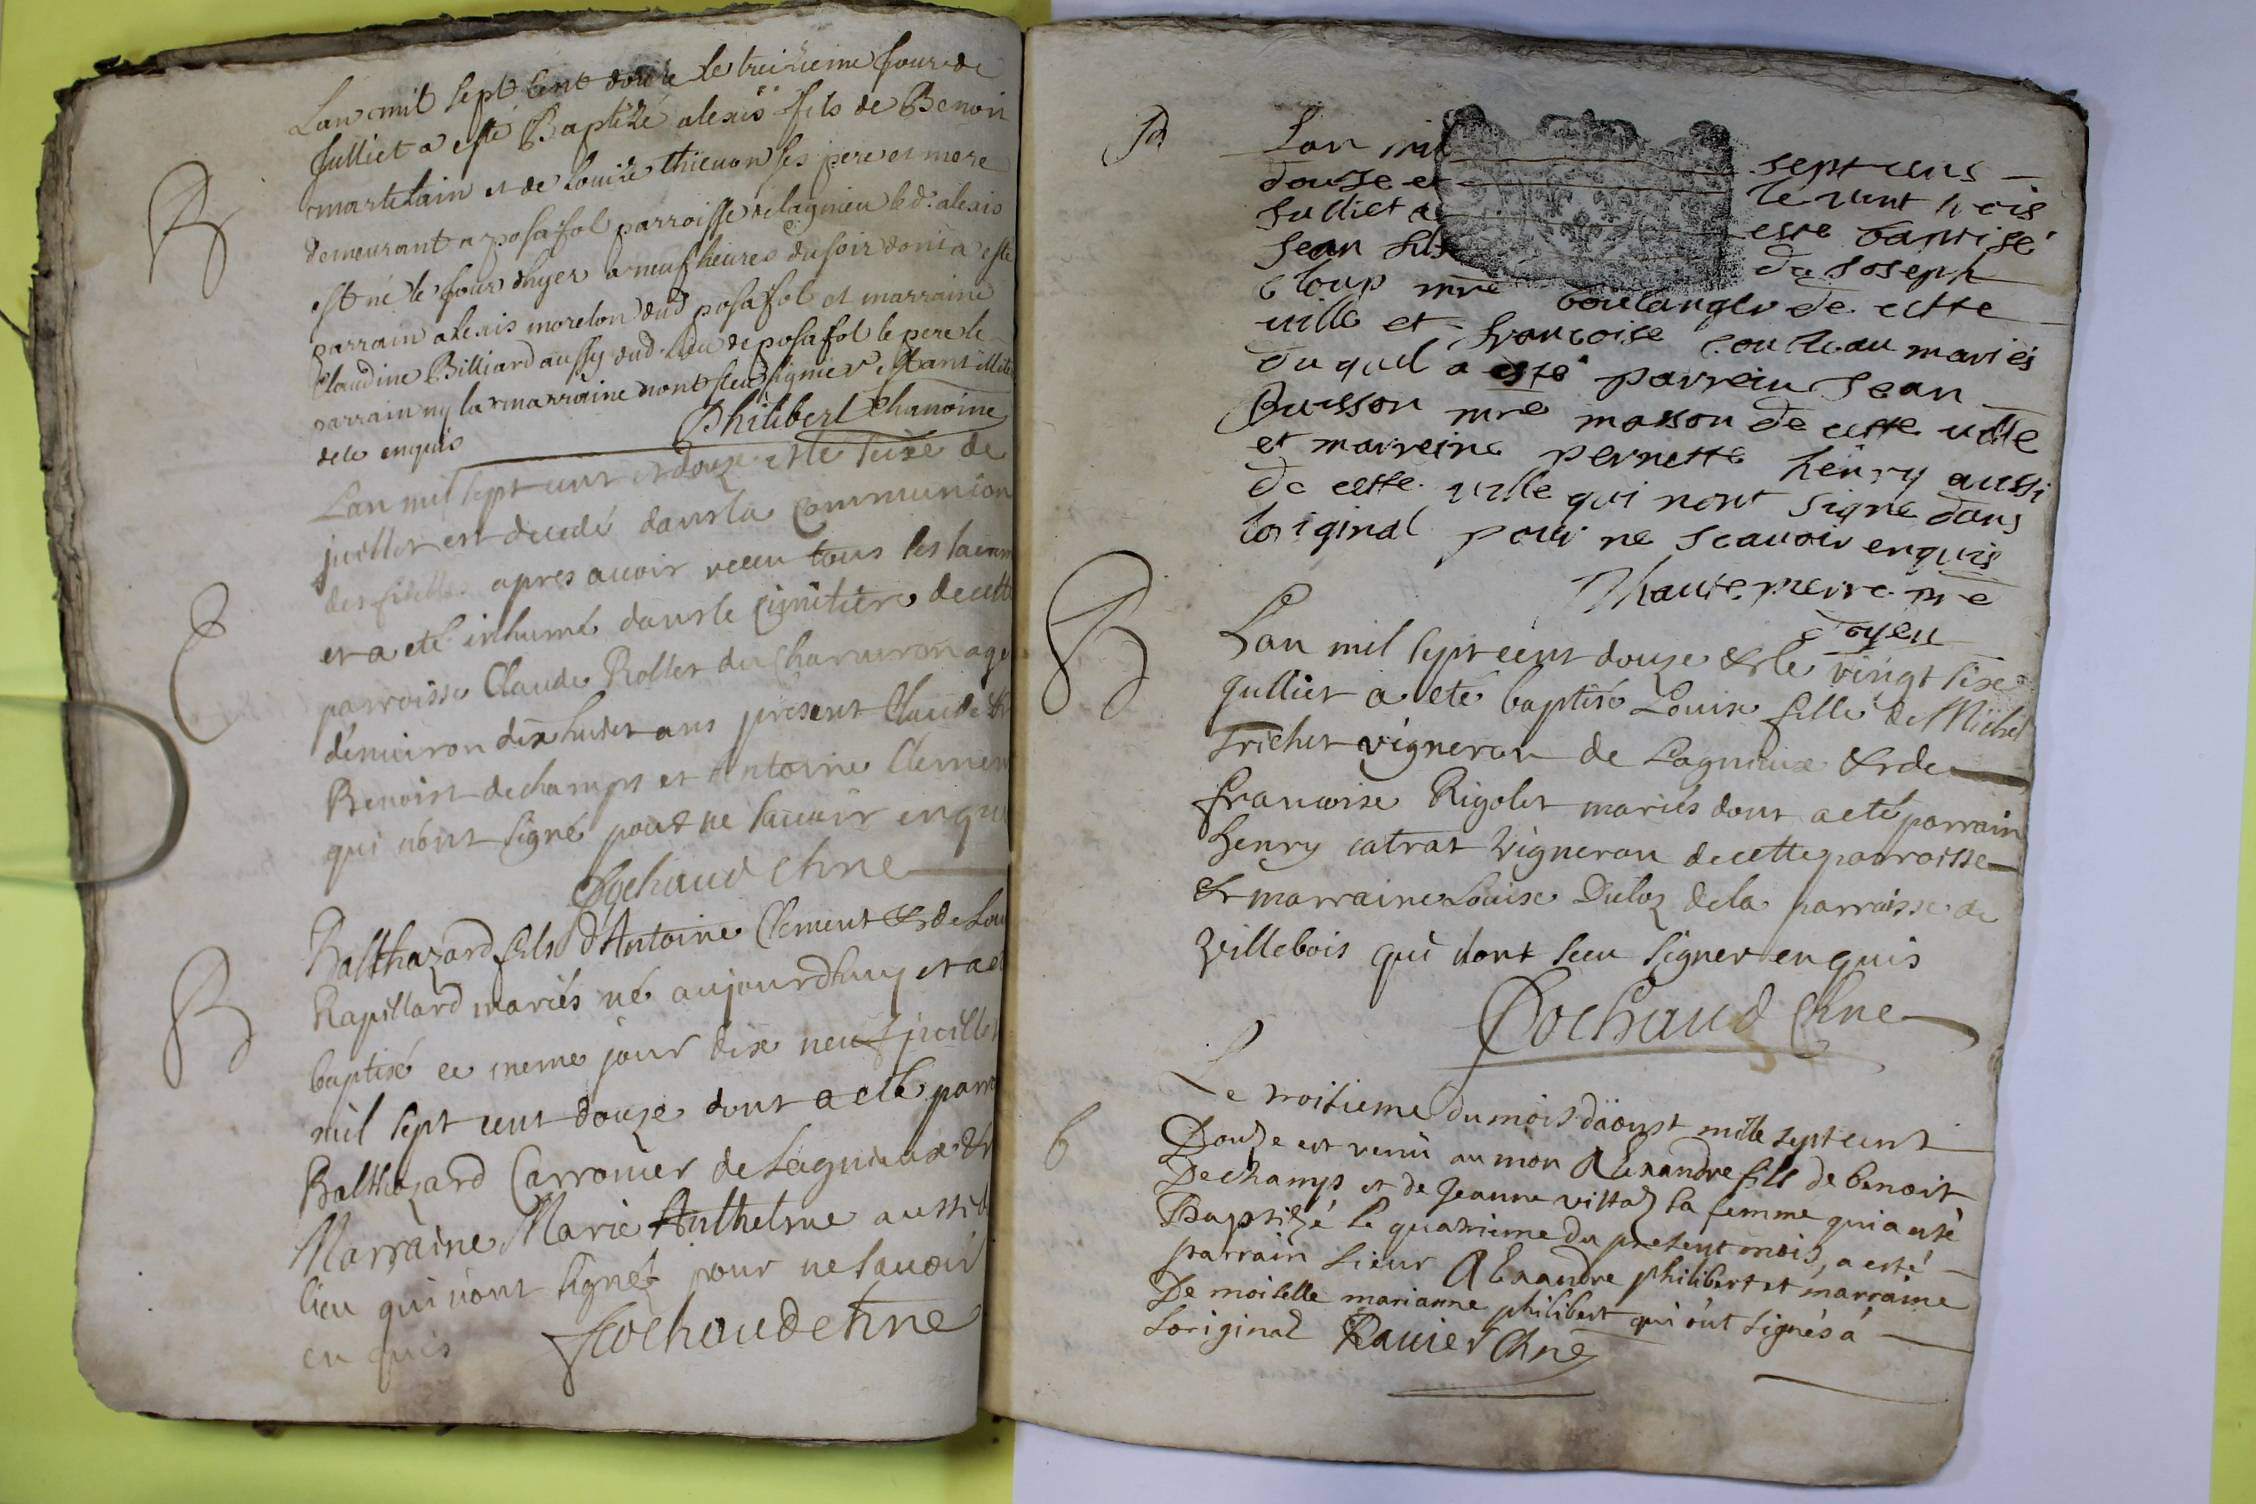 B
Lan mil sept cent douze le treizieme jour de
Julliet a esté Baptizé alexis fils de Benoit
martelain et de Louise thievon ses pere et mere
demeurant a posafol parroisse de lagnieu led. alexis
est né le jour dhyer a neuf heures du soir dont a esté
parrain alexis morelon dud posafol et marraine
Claudine Billiard aussy dud. lieu de posafol le pere le
parrain ny la marraine nont sceu signer
de ce enquis Philibert chanoine
Lan mil sept cent et douze et le seize de
juillet est decedé dans la Communion
des fidelles apres avoir receu tous les
et a eté inhumé dans le cimitiere de cette
parroisse Claude Rollet du Charveron agé
d'environ dix huit ans présent Claude
Benoist dechamps et Antoine Clemen
qui nont signé pour ne savoir enquis
Cochaud chne
B
Balthazard fils d'Antoine Clement & de Lou
Rapillard mariés né aujourdhuy et a eté
baptisé ce meme jour dix neuf juillet
mil sept cent douze dont a eté parra
Balthazard Carronier de Lagnieux &
Marraine Marie Anthelme aussi d
lieu qui n'ont signé pour ne savoir
enquis Cochaud chne
B
Lan mil sept cens
douse et le vint trois
Julliet a esté baptisé
Jean fils de Joseph
Cloup mre boulanger de cette
ville et francoise mariés
duquel a esté parrein Jean
Buisson mre masson de cette ville
et marreine pernette henry aussi
de cette ville qui nont signé dans
loriginal pour ne scavoir enquis
doyen
B
Lan mil sept cent douze & le vingt sixe
Jullier a eté baptisé Louise fille de Michel
trichet vigneron de Lagnieux & de
francoise Rigolet mariés dont a eté parrain
henry catrat vigneron de cette parroisse
& marraine Louise Duloz de la parroisse de
Villebois qui n'ont sceu signer enquis
Cochaud Chne
b
Le troisieme du mois d'aoust mille sept cent
Douze est venu au mon Alexandre fils de benoit
Dechamps et de Jeanne vittoz sa femme qui a esté
Baptizé le quatrieme du present mois, a esté
parrain sieur Alexandre philibert et marraine
De moiselle marianne philibert qui ont signés a
Loriginal Ravier Chne